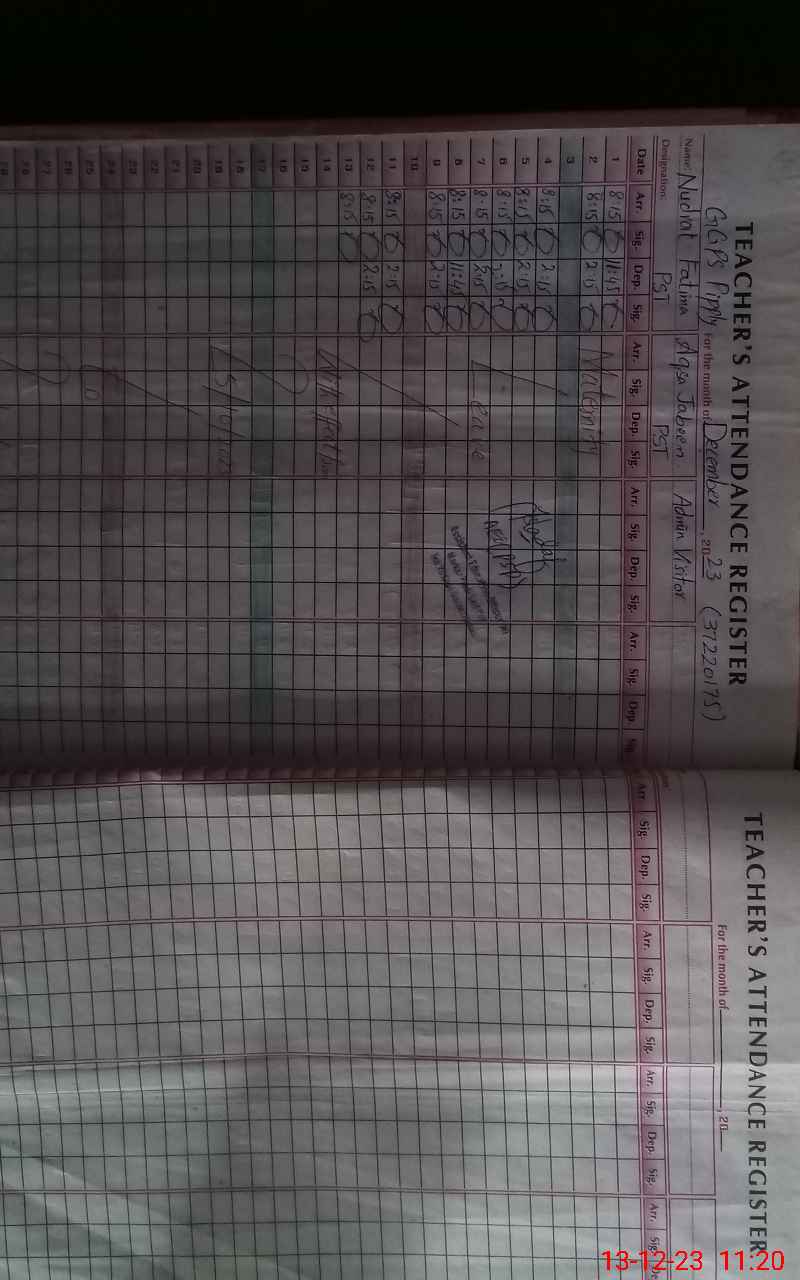 TEACHER'S ATTENDANCE REGISTER
GGPS Pipply For the month of December, 2023 (37220175)
Name: Nudrat Fatima Aqsa Jabeen Admin Visitor
Designation: PST PST
Date Arr. Sig. Dep. Sig. Arr. Sig. Dep. Sig. Arr. Sig. Dep. Sig. Arr. Sig. Dep. Sig.
1 8:15 11:45
2 8:15 2:15 Maternity
3
4 8:15 2:15
5 8:15 2:15
6 8:15 2:15
7 8:15 2:15 Leave
8 8:15 11:45
9 8:15 2:15
10
11 8:15 2:15
12 8:15 2:15
13 8:15
14 With effect from
15
16
17
18
19
20
21
22
23
24
25
26
27
28
TEACHER'S ATTENDANCE REGISTER
For the month of , 20
Arr. Sig. Dep. Sig. Arr. Sig. Dep. Sig. Arr. Sig. Dep. Sig. Arr. Sig. De
13-12-23 11:20